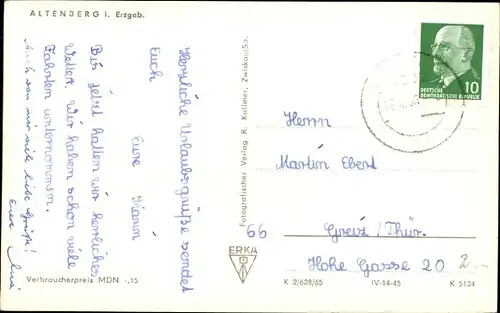 ALTENBERG i. Erzgeb.
Herzliche Urlaubsgrüße sendet
Euch
Eure Karin
Bis jetzt hatten wir herrliches
Wetter. Wir haben schon viele
Fahrten unternommen.
Auch von mir viele liebe Grüße!
Eure
Verbraucherpreis MDN -,15
Fotografischer Verlag R. Kallmer, Zwickau/Sa.
ERKA
10
DEUTSCHE
DEMOKRATISCHE REPUBLIK
Herrn
Martin Ebert
66 Greiz/Thür.
Hohe Gasse 20
2.-
K 2/628/65 IV-14-45 K 5134